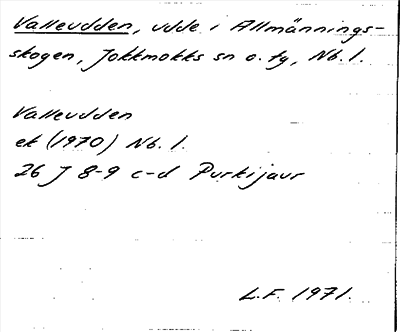 Valleudden, udde i Allmännings-
skogen, Jokkmokks sn o. tg, Nb. l.
Valleudden
ek (1970) Nb. l.
26 J 8-9 c-d Purkijaur
L.F. 1971.